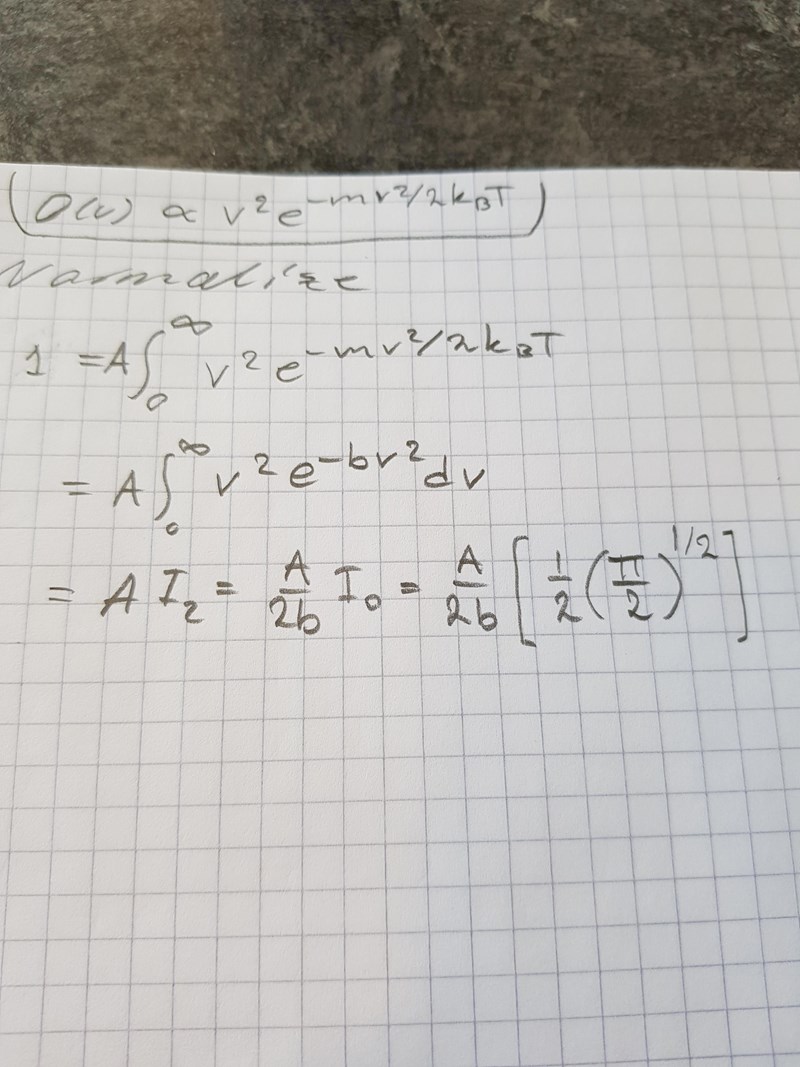 D(v) ∝ v²e^(-mv²/2k_BT)
Normalize
1 = A∫₀^∞ v² e^(-mv²/2k_BT)
= A∫₀^∞ v² e^(-bv²) dv
= A I₂ = A/2b I₀ = A/2b [1/2 (π/2)^(1/2)]